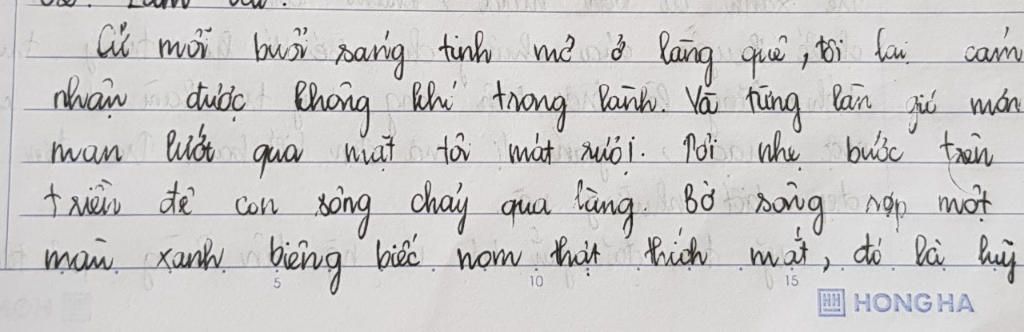 Cứ mỗi buổi sáng tinh mơ ở làng quê, tôi lại cảm
nhận được không khí trong lành. Và từng làn gió mơn
man lướt qua mặt tôi mát rượi. Tôi nhẹ bước trên
triền đê con sông chảy qua làng. Bờ sông rợp một
màu xanh biêng biếc nom thật thích mắt, đó là luỹ
5 10 15
HONG HA